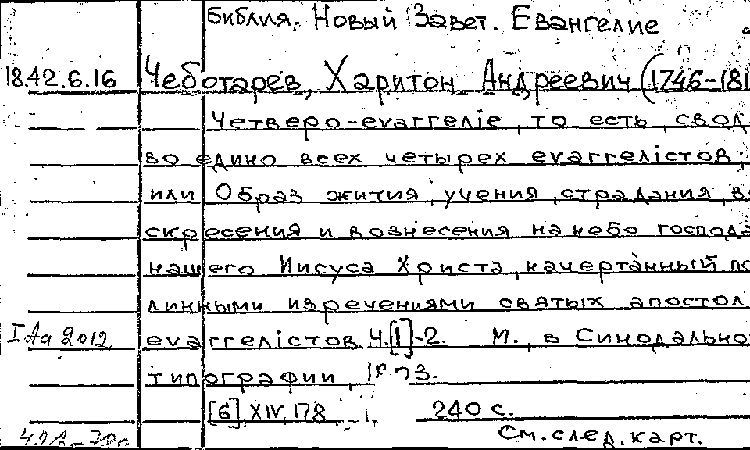 Библия. Новый Завет. Евангелие
18.42.6.16 Чеботарев, Харитон Андреевич (1746-181
Четверо-еваггелiе, то есть, свод
во едино всех четырех еваггелiстов,
или Образ жития, учения, страдания, во
скресения и вознесения на небо господа
нашего Иисуса Христа, начертанный по
линными изречениями святых апостол
еваггелiстов. Ч.[1]-2. М., в Синодально
типографии,
[6] XIV, 178 240 с.
См. след. карт.